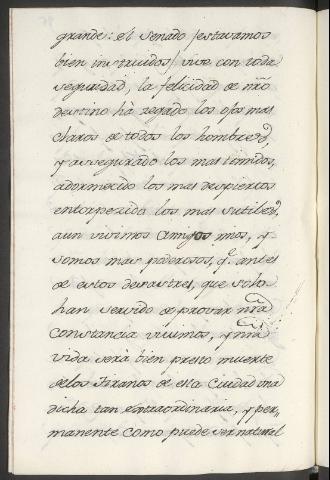 grande: el senado /estavamos
bien instruidos/ vive con toda
seguridad, la felicidad de nrô
destino há segado los ojos mas
claros de todos los hombres,
y assegurado los mas timidos,
adormecido los mas despiertos
entorpezido los mas sutiles,
aun vivimos Amigos mos, y
somos mas poderosos, q.e antes
de estos desastres, que solo
han servido de provar nrâ
Constancia vivimos, y nrâ
vida será bien presto muerte
de los Tiranos de esta Ciudad una
dicha tan extraordinaria, y per-
manente como puede ser natural